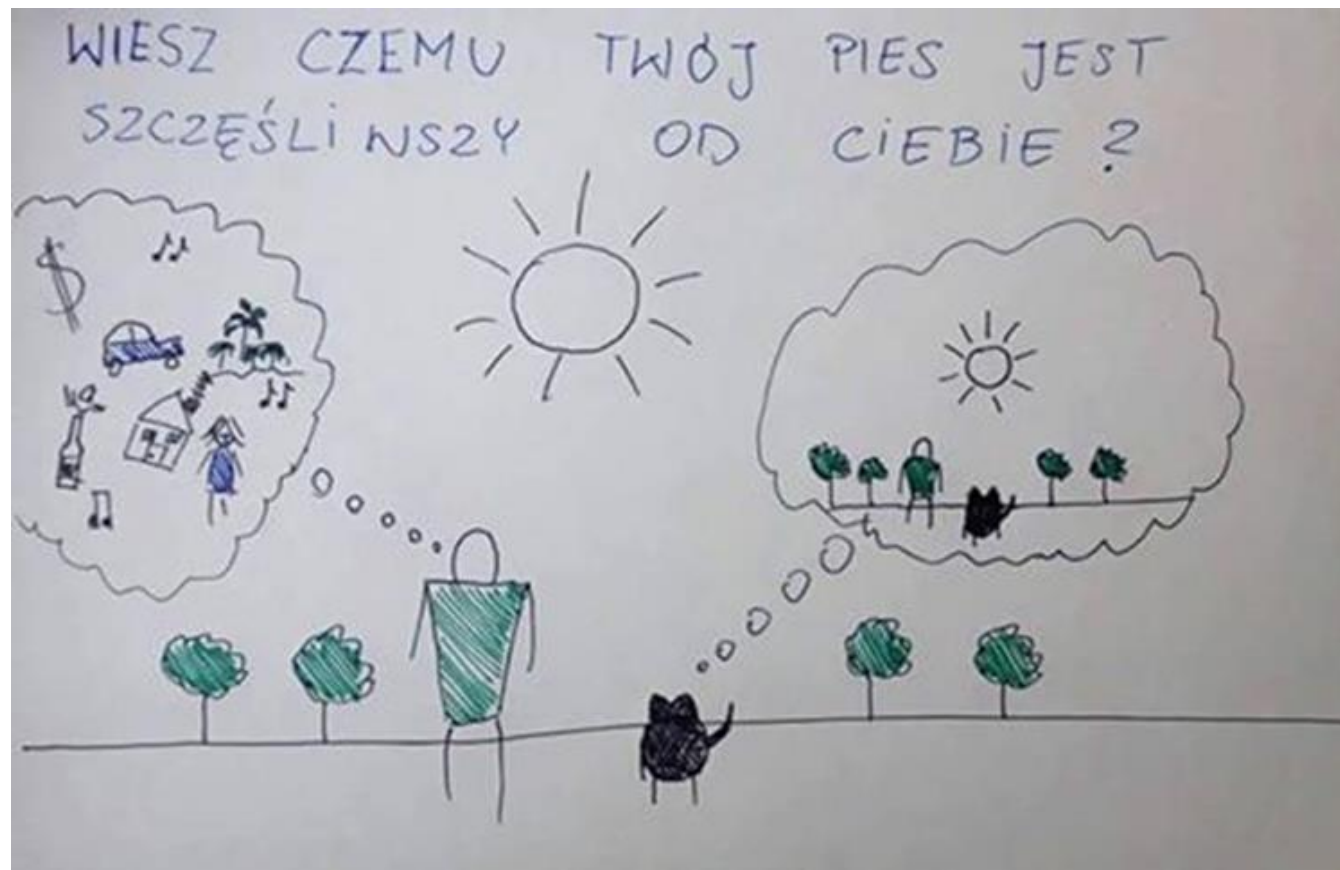 WIESZ CZEMU TWÓJ PIES JEST
SZCZĘŚLIWSZY OD CIEBIE?
$